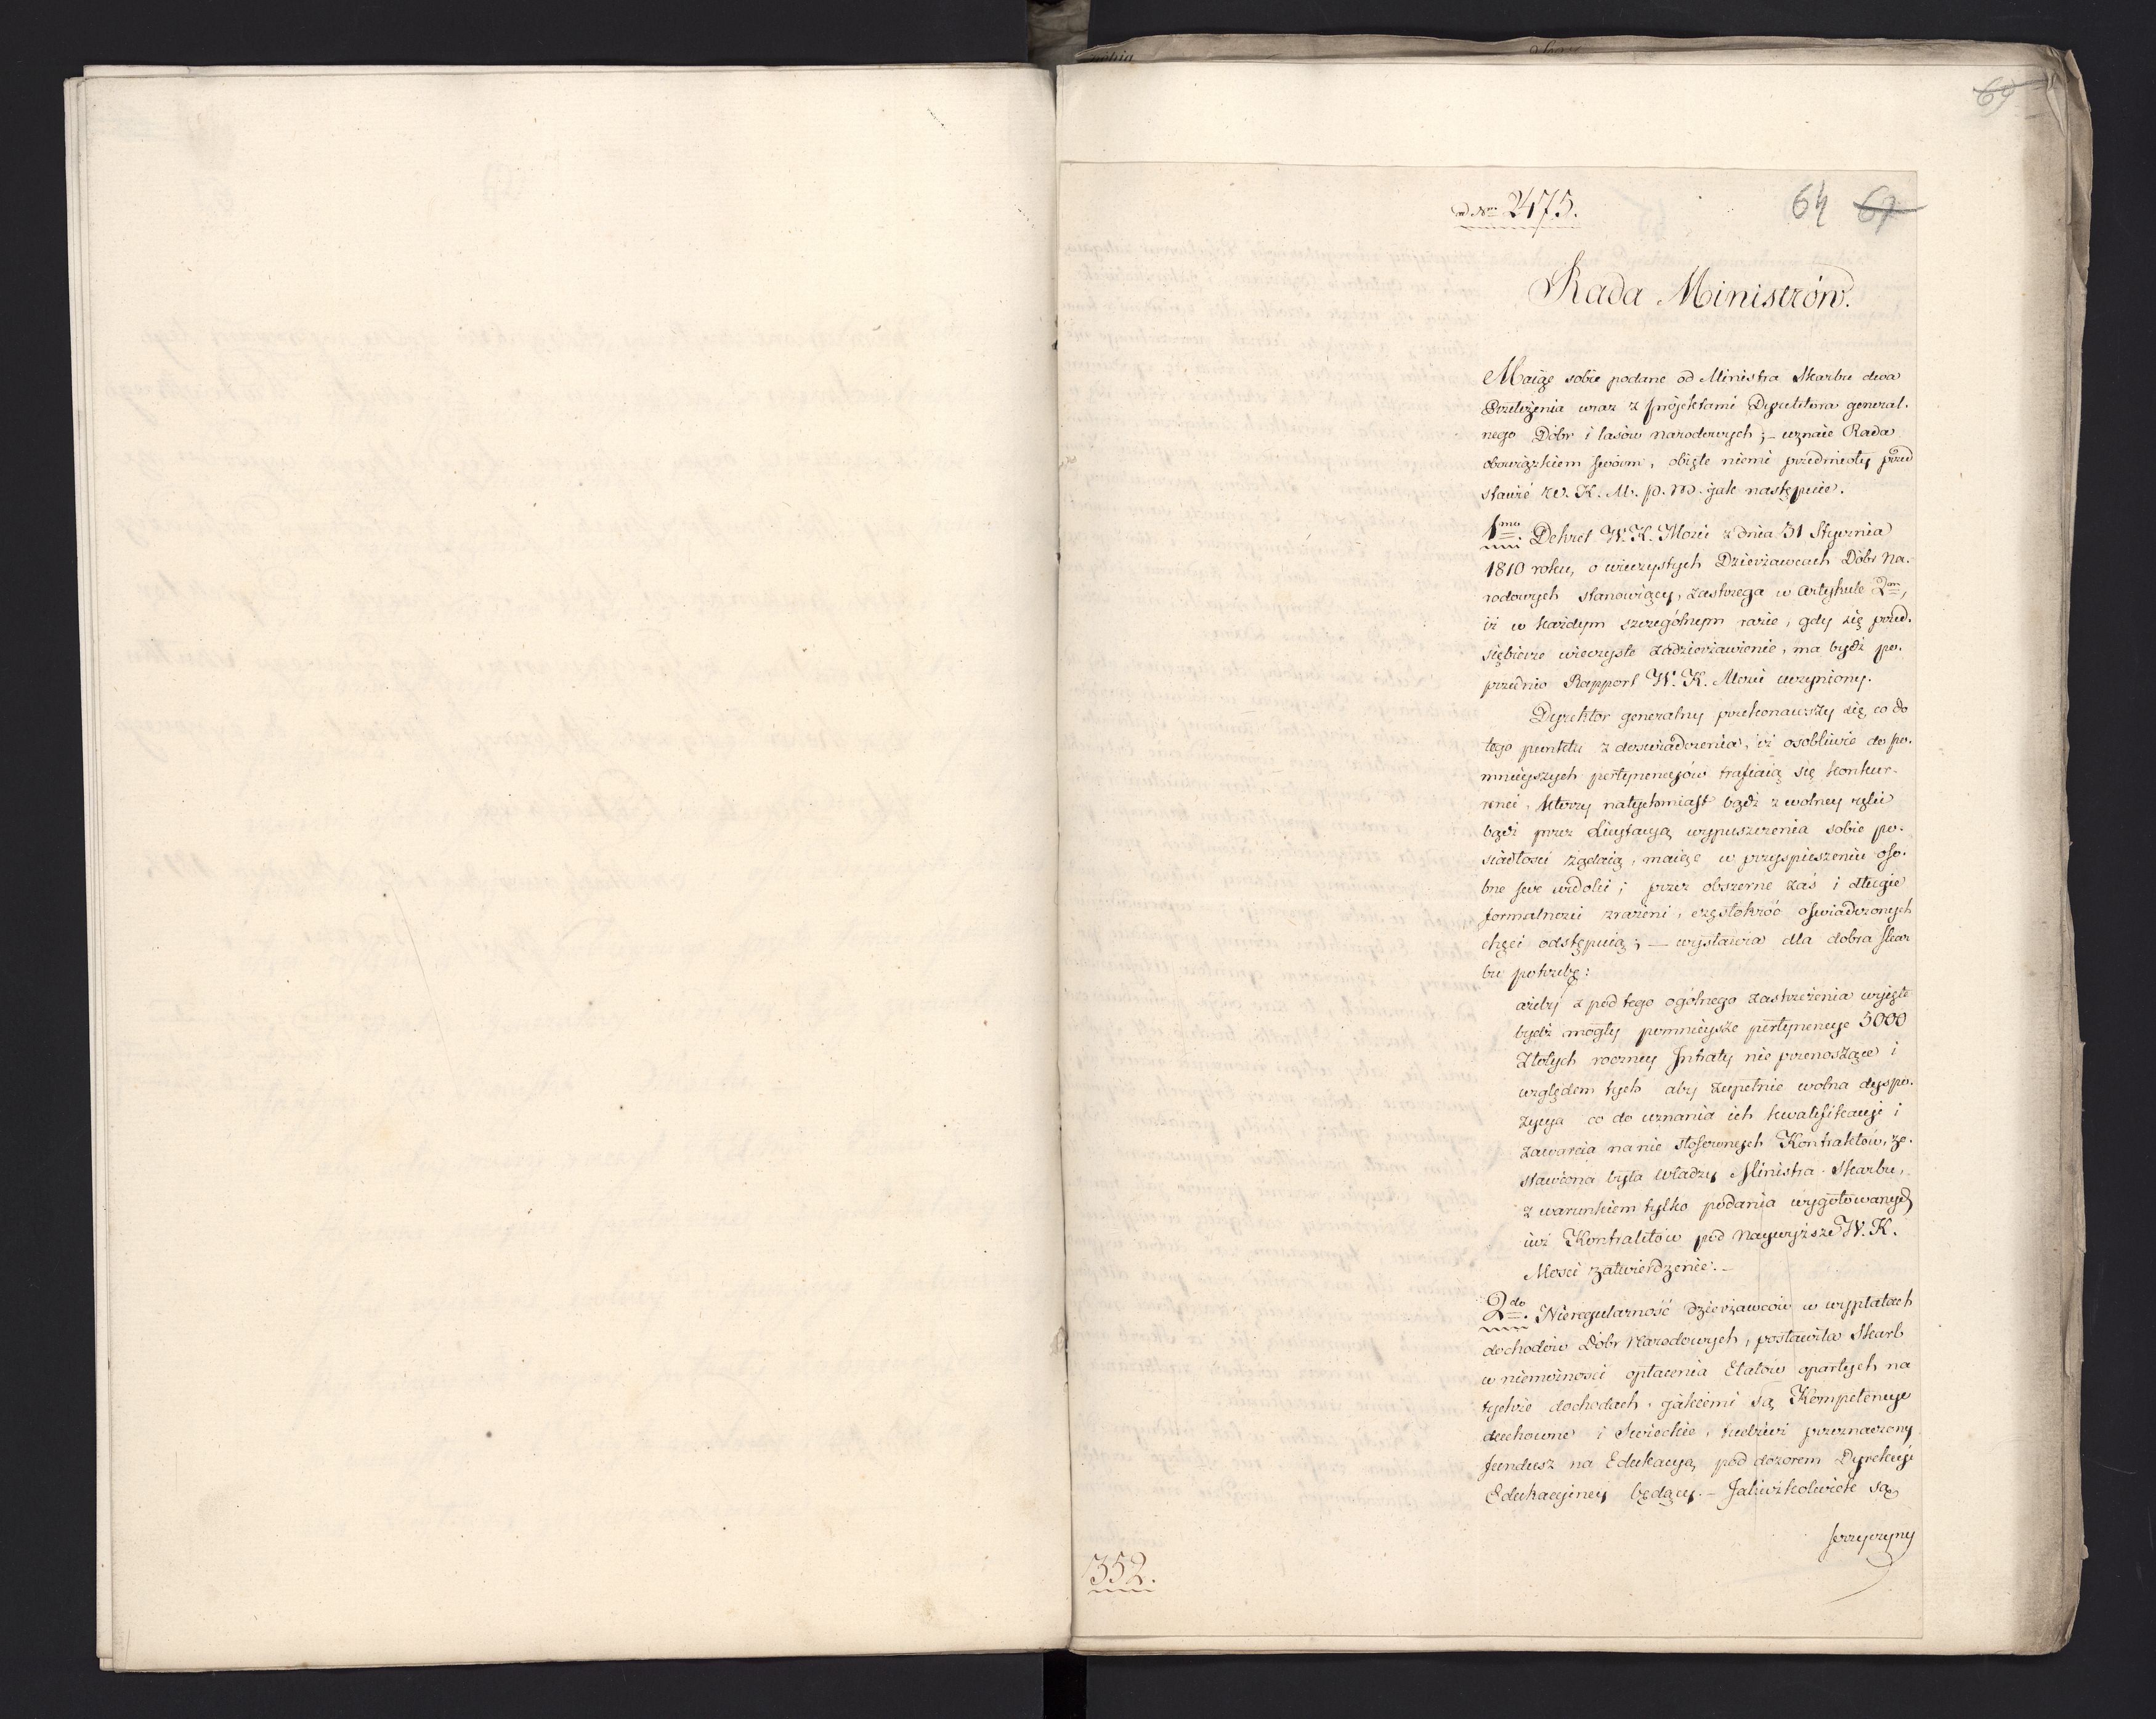 69
ad Nrm 2475.
64 69
Rada Ministrów.
Maiąc sobie podane od Ministra Skarbu dwa
Przełożenia wraz z projektami Dyrektora general-
nego Dóbr i lasów narodowych; – uznaie Rada
obowiązkiem swoim, obięte niemi przedmioty przed
stawić W. K. M. p. m. jak następuie.
1mo. Dekret W. K. Mości z dnia 31 Stycznia
1810 roku, o wieczystych Dzierżawcach Dóbr Na-
rodowych stanowiący, zastrzega w Artykule 2m,
iż w każdym szczególnym razie, gdy się przed-
siębierze wieczyste zadzierżawienie, ma bydź po-
przednio Rapport W. K. Mości uczyniony.
Dyrektor generalny przekonawszy się, co do
tego punktu z doswiadczenia, iż osobliwie do po-
mnieyszych pertynencyów trafiaią się konkur-
renci, którzy natychmiast bądź z wolney ręki
bądź przez Licytacyą wypuszczenia sobie po-
siadłości żądaią, maiąc w przyspieszeniu oso-
bne swe widoki; przez obszerne zaś i długie
formalności zrażeni, częstokróć oświadczonych
chęci odstępuią; – wystawia dla dobra skar
bu potrzebę:
ażeby z pod tego ogólnego zastrzeżenia wyięte
bydź mogły pomnieysze pertynencye 5000
Złotych roczney Intraty nie przenoszące i
względem tych aby zupełnie wolna dyspo-
zycya co do uznania ich kwalifikacyi i
zawarcia na nie stosownych Kontraktów, zo-
stawiona była władzy Ministra Skarbu,
z warunkiem tylko podania wygotowanych
iuż Kontraktów pod Naywyższe W. K.
Mości zatwierdzenie. –
2do. Nieregularność dzierżawców w wypłatach
dochodów Dóbr Narodowych, postawiła Skarb
w niemożności opłacenia Etatów opartych na
tychże dochodach, jakiemi są Kompetencye
duchowne i świeckie, tudzież przeznaczony
fundusz na Edukacyą, pod dozorem Dyrekcyi
Edukacyiney będący. – Jakieżkolwiek są
przyczyny
352.